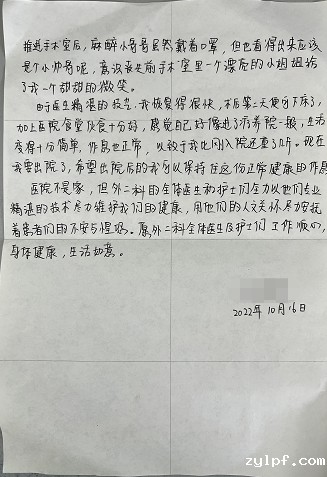 推进手术室后，麻醉小哥哥虽然戴着口罩，但也看得出来应该
是个小帅哥呢，意识丧失前手术室里一个漂亮的小姐姐给
了我一个甜甜的微笑。
由于医生精湛的技艺，我恢复得很快，术后第二天便可下床了，
加上医院食堂伙食十分好，感觉自己好像进了疗养院一般，生活
变得十分简单，作息也正常，以致于我比刚入院还重了几斤。现在
我要出院了，希望出院后的我可以保持住这份正常健康的作息
医院不是家，但外二科的全体医生和护士们全力以他们专业
精湛的技术尽力维护我们的健康，用他们的人文关怀尽力安抚
着患者们的不安与惶恐。愿外二科全体医生及护士们工作顺心，
身体健康，生活如意。
2022年10月16日
www.zylpf.com